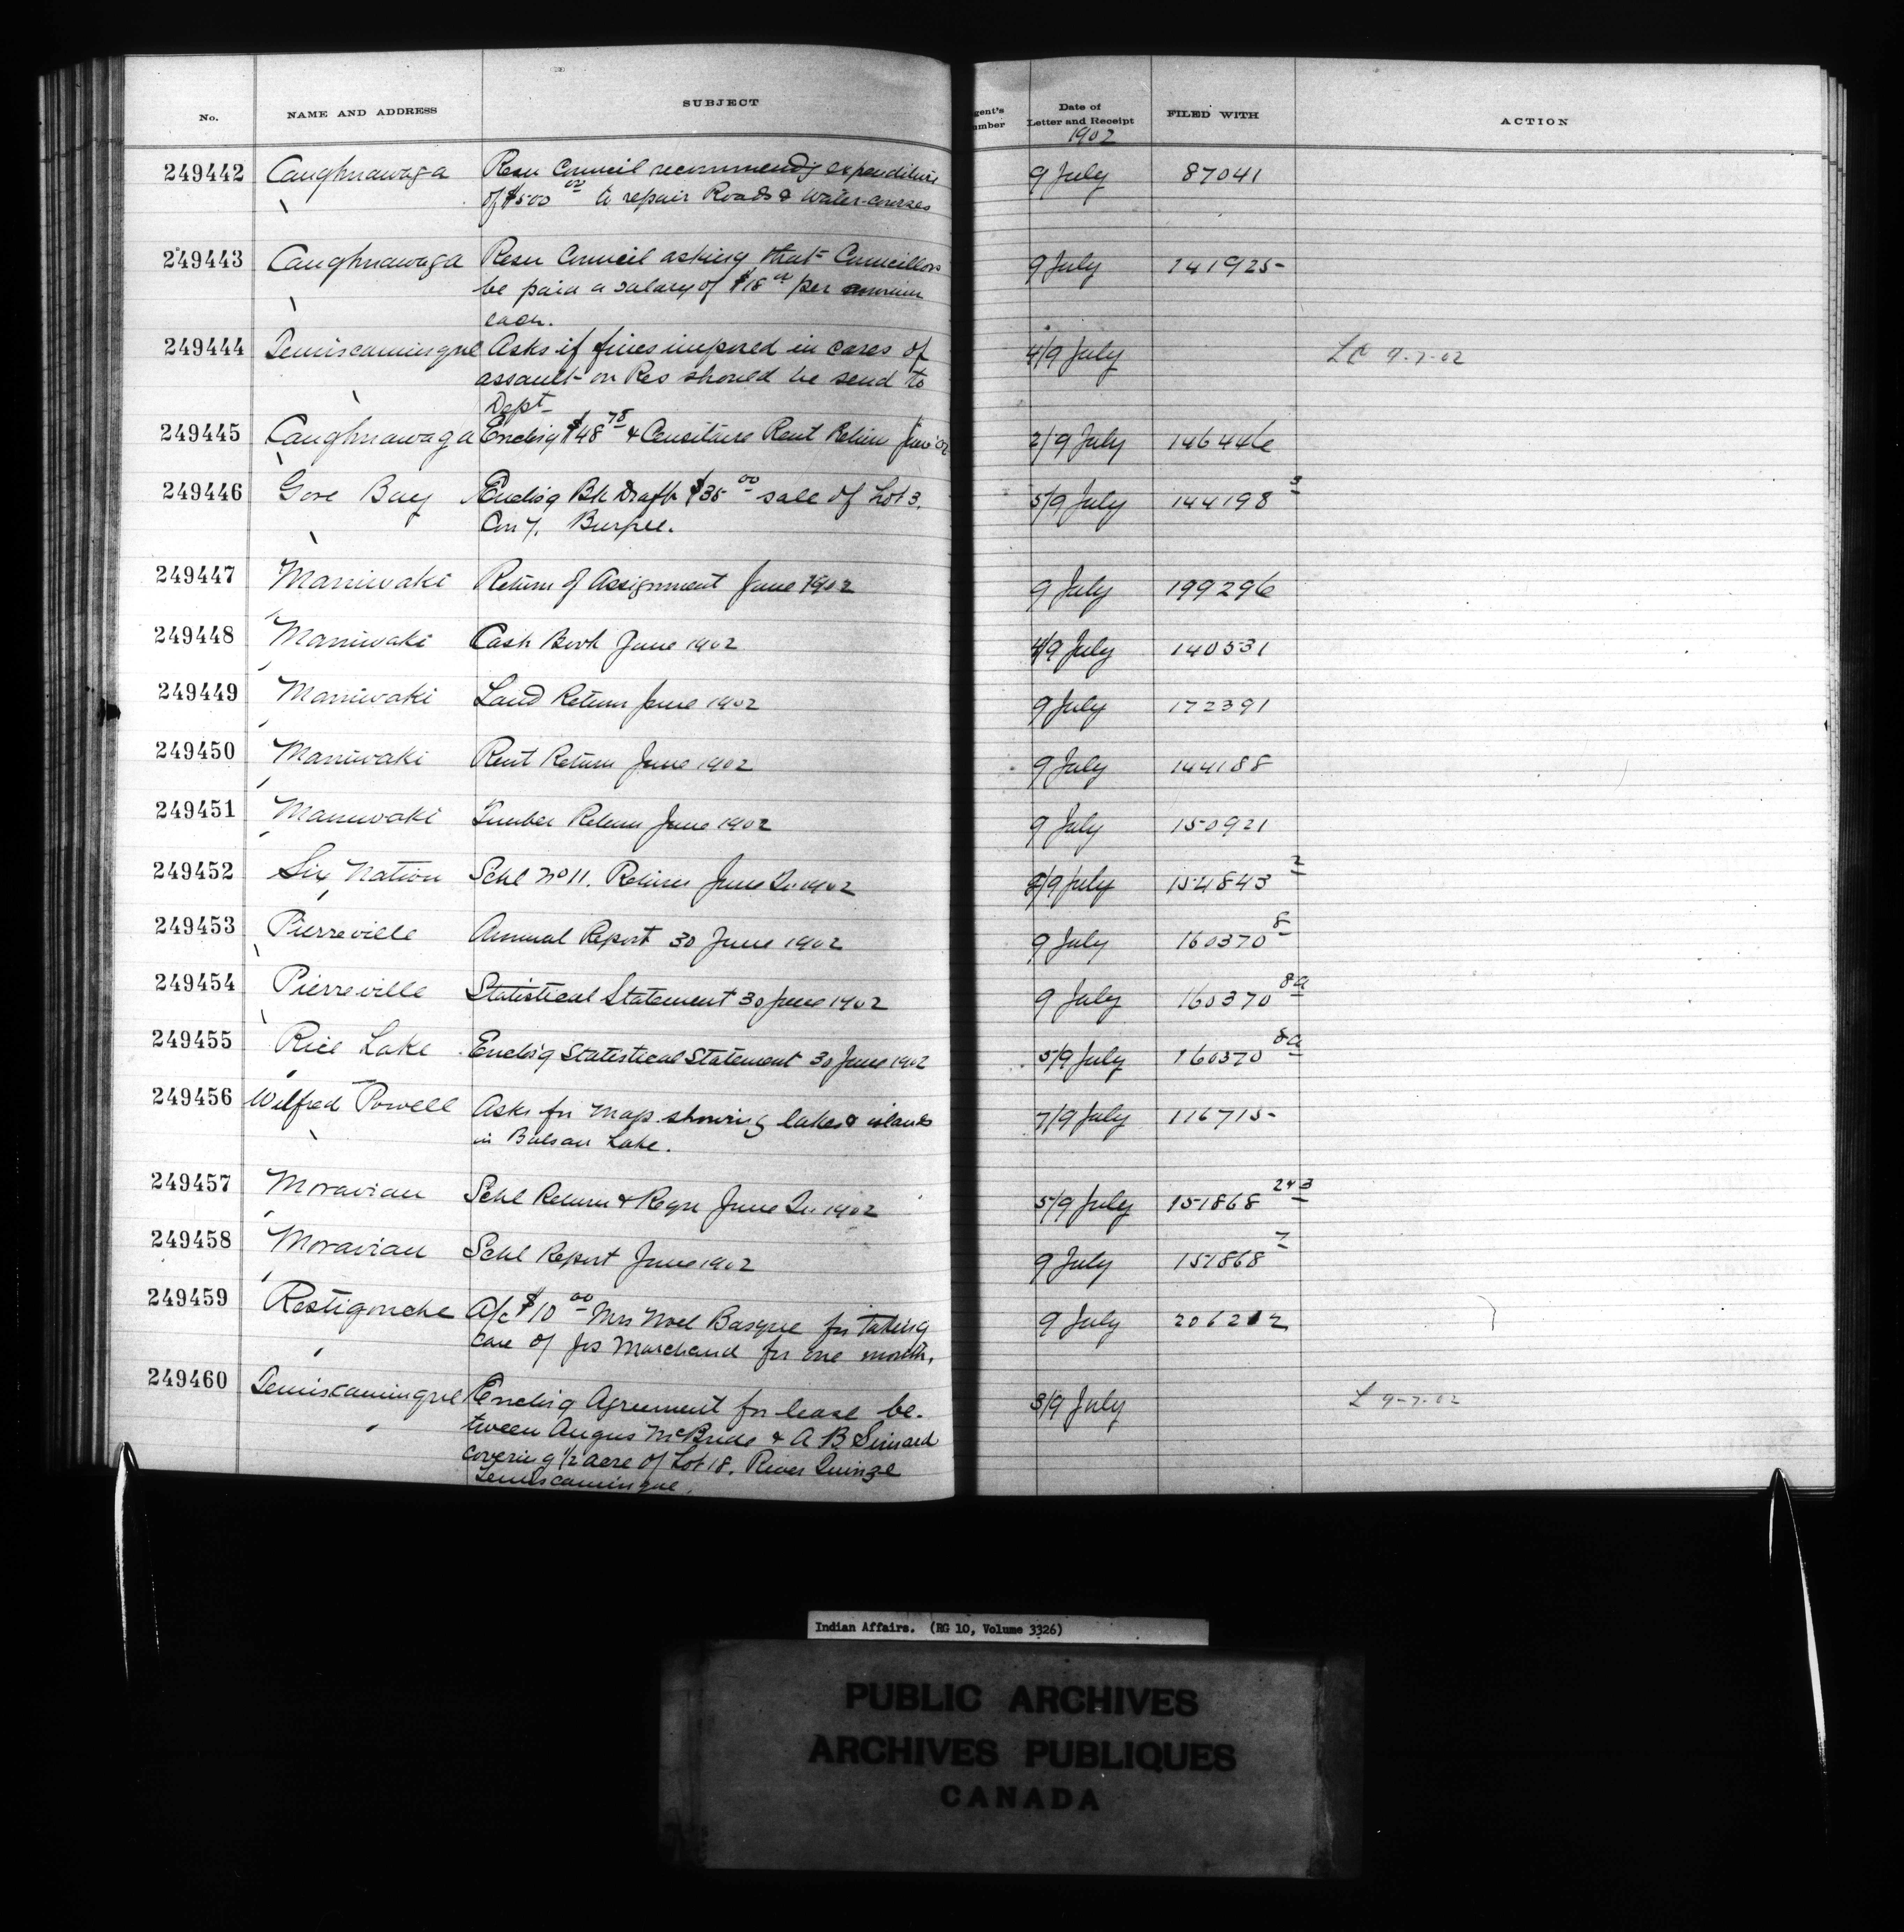 No. NAME AND ADDRESS SUBJECT gent's umber Date of Letter and Receipt FILED WITH ACTION
1902
249442 Caughnawaga Resn Council recommend'g expenditure 9 July 87041
of $500 00 to repair Roads & Water-courses
249443 Caughnawaga Resn Council asking that Councillors 9 July 141925
be paid a salary of $18 00 per annum
each.
249444 Temiscamingue Asks if fines imposed in cases of 4/9 July LC 9-7-02
assault on Res should be send to
Dept
249445 Caughnawaga Enclos'g $48 78 & Censitaire Rent Return June '02 2/9 July 146446
249446 Gore Bay Enclos'g Bk Draft $35 00 sale of Lot 3. 5/9 July 144198 3
Con 7. Burpee.
249447 Maniwaki Return of Assignment June 1902 9 July 199296
249448 Maniwaki Cash Book June 1902 4/9 July 140531
249449 Maniwaki Land Return June 1902 9 July 172391
249450 Maniwaki Rent Return June 1902 9 July 144188
249451 Maniwaki Timber Return June 1902 9 July 150921
249452 Six Nation Schl No 11. Return June Qr 1902 /9 July 154843 2
249453 Pierreville Annual Report 30 June 1902 9 July 160370 8
249454 Pierreville Statistical Statement 30 June 1902 9 July 160370 8a
249455 Rice Lake Enclos'g Statistical Statement 30 June 1902 5/9 July 160370 8a
249456 Wilfred Powell Asks for Map showing lakes & islands 7/9 July 116715
in Balsam Lake.
249457 Moravian Schl Return & Reqn June Qr. 1902 5/9 July 151868 2 & 3
249458 Moravian Schl Report June 1902 9 July 151868 7
249459 Restigouche A/c $10 00 Mrs Noel Basque for taking 9 July 206212
care of Jos Marchand for one month.
249460 Temiscamingue Enclos'g Agreement for lease be- 3/9 July L 9-7-02
tween Angus McBride & A B Simard
covering 1/2 acre of Lot 18. River Quinze
Temiscamingue.
Indian Affairs. (RG 10, Volume 3326)
PUBLIC ARCHIVES
ARCHIVES PUBLIQUES
CANADA